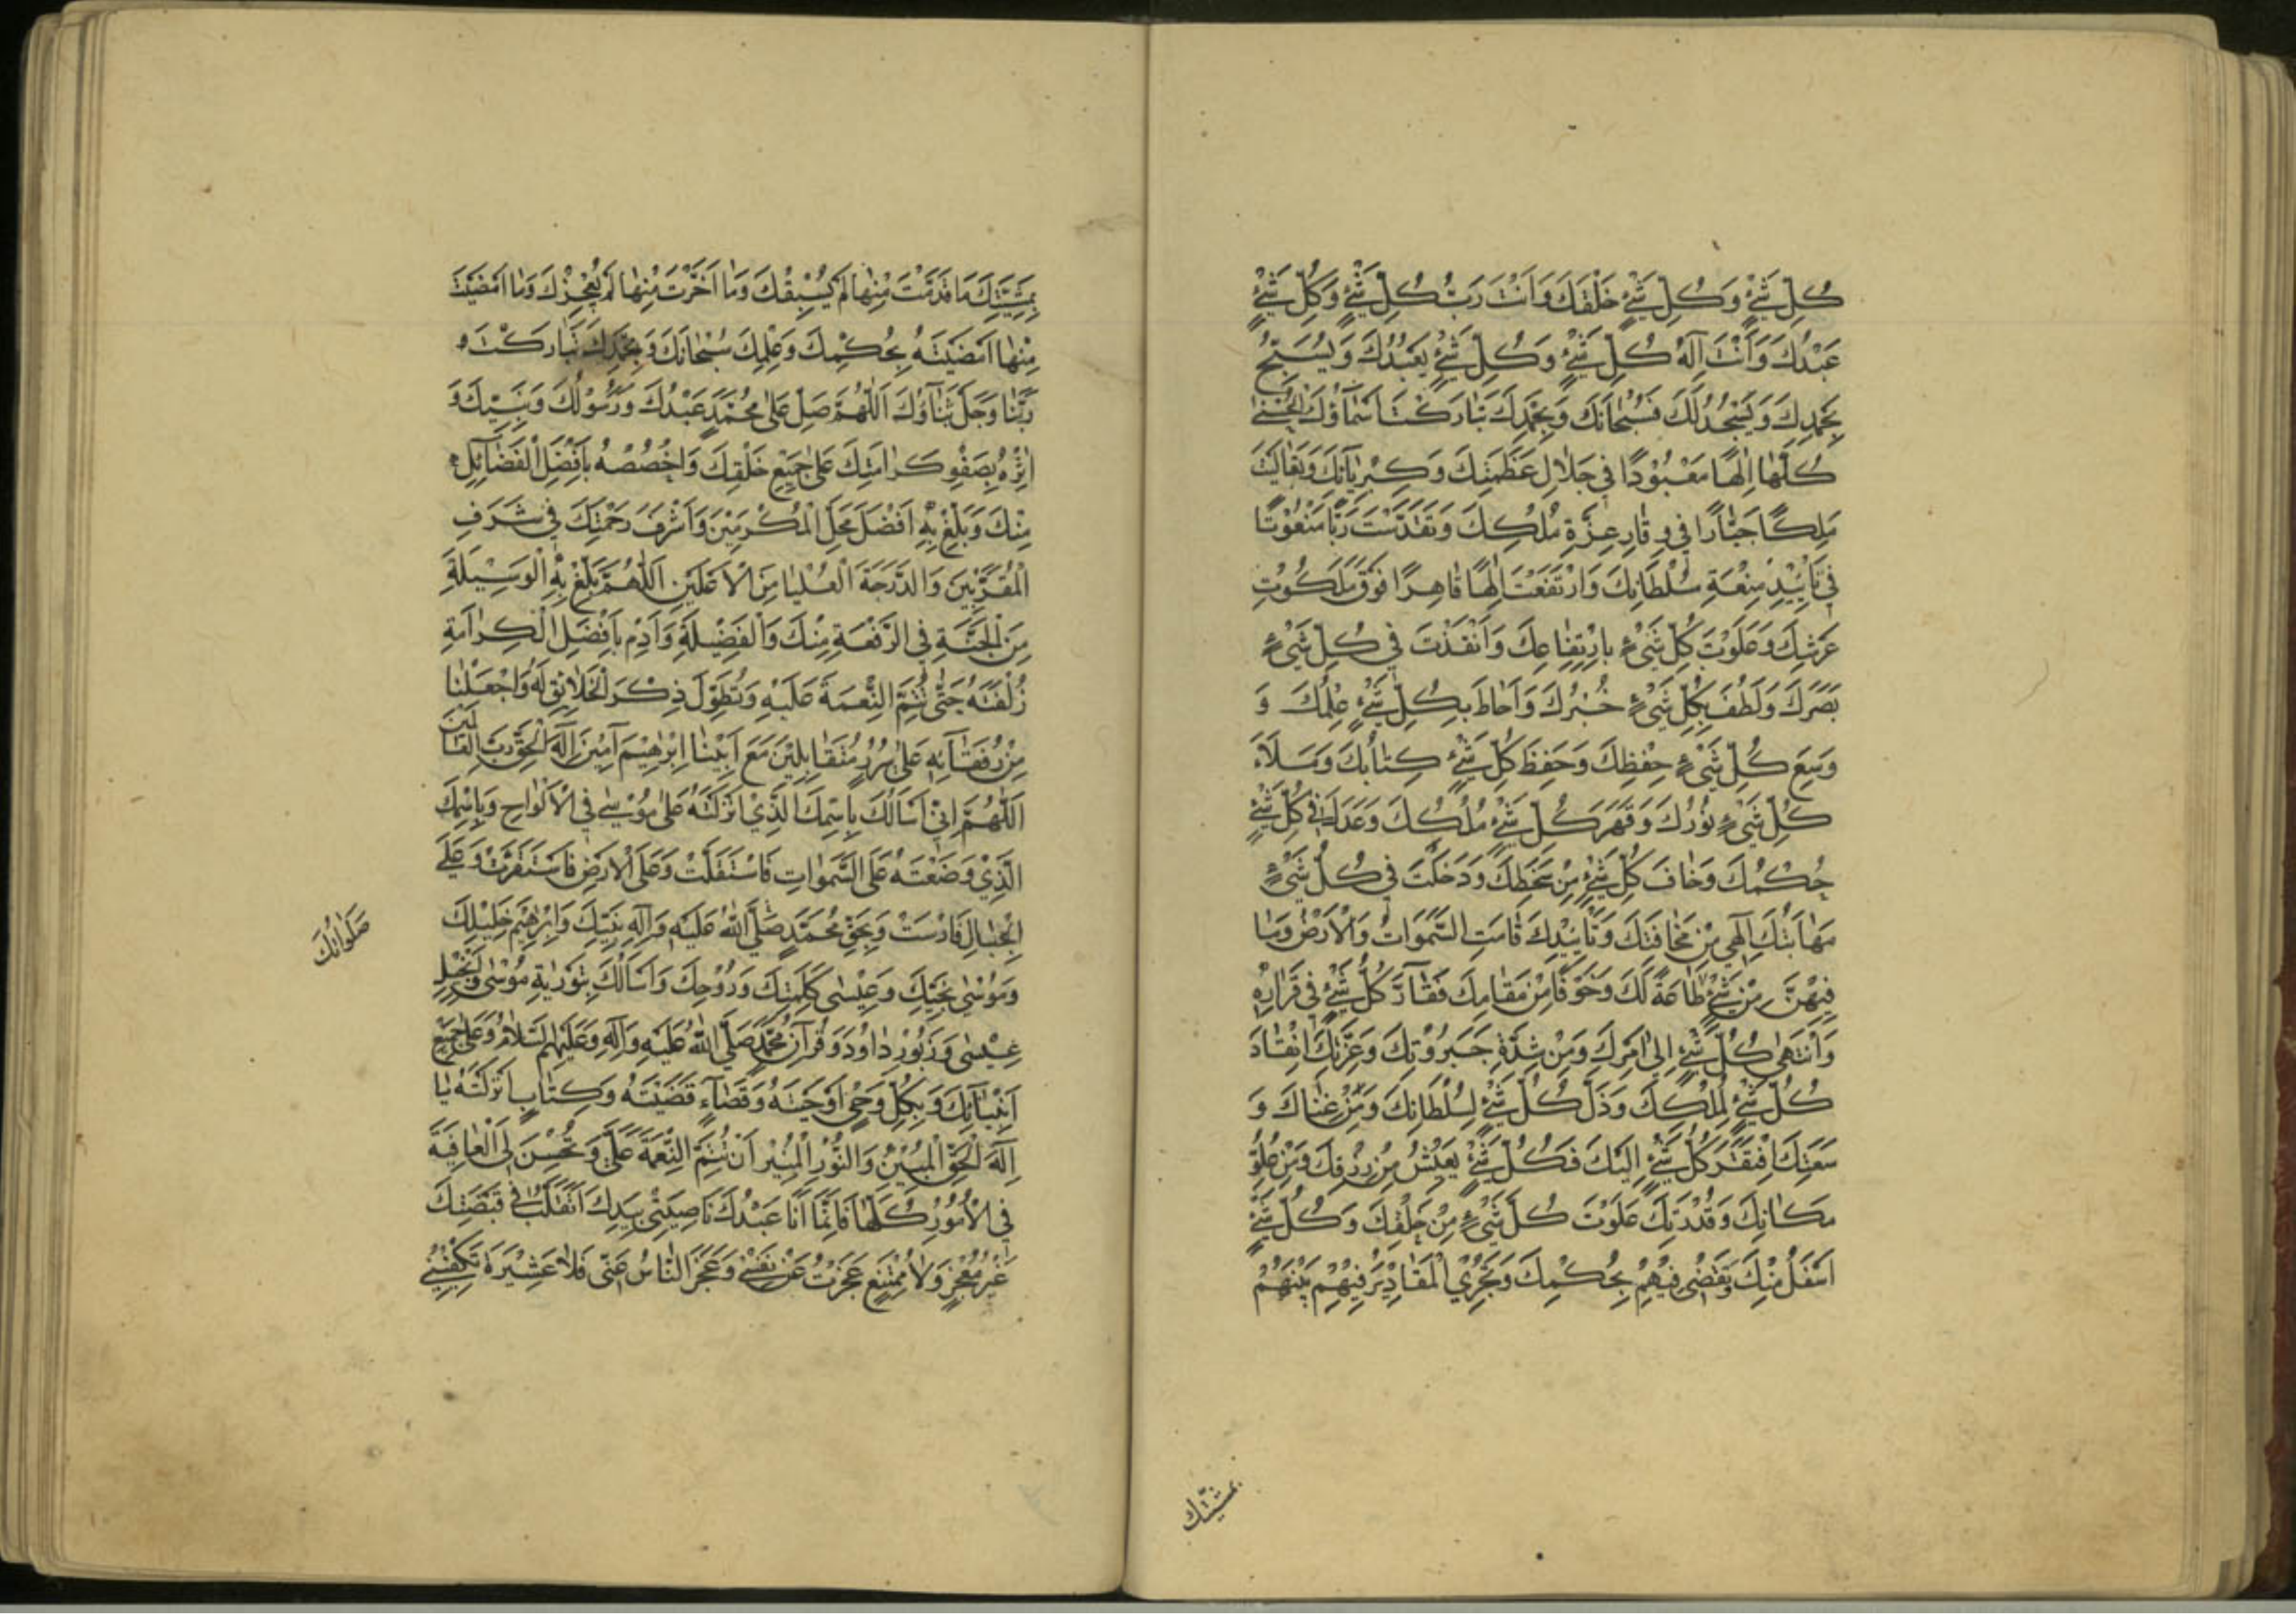 كُلِّ شَيْءٍ وَكُلِّ شَيْءٍ خَلْقِكَ وَاَنْتَ رَبُّ كُلِّ شَيْءٍ وَكُلِّ شَيْءٍ
عَبْدُكَ وَاَنْتَ اِلَهُ كُلِّ شَيْءٍ وَكُلِّ شَيْءٍ يَعْبُدُكَ وَيُسَبِّحُ
بِحَمْدِكَ وَيَسْجُدُ لَكَ فَسُبْحَانَكَ وَبِحَمْدِكَ تَبَارَكْتَ اَسْمَآؤُكَ الْحُسْنٰى
كُلَّهَا اِلٰهًا مَعْبُوْدًا فِي جَلَالِ عَظَمَتِكَ وَكِبْرِيَآئِكَ وَتَعَالَيْتَ
مَلِكًا جَبَّارًا فِي وِقَارِ عِزَّةِ مُلْكِكَ وَتَقَدَّسْتَ رَبًّا مَنْعُوْتًا
فِي تَأْيِيْدِ مِنْعَةِ سُلْطَانِكَ وَارْتَفَعْتَ اِلٰهًا قَاهِرًا فَوْقَ مَلَكُوْتِ
عَرْشِكَ وَعَلَوْتَ كُلِّ شَيْءٍ بِارْتِفَاعِكَ وَاَنْفَذْتَ فِي كُلِّ شَيْءٍ
بَصَرَكَ وَلَطُفَ بِكُلِّ شَيْءٍ خُبْرُكَ وَاَحَاطَ بِكُلِّ شَيْءٍ عِلْمُكَ وَ
وَسِعَ كُلِّ شَيْءٍ حِفْظِكَ وَحَفِظَ كُلِّ شَيْءٍ كِتَابُكَ وَمَلَاَءَ
كُلِّ شَيْءٍ نُوْرُكَ وَقَهَرَ كُلِّ شَيْءٍ مُلْكُكَ وَعَدَلَ فِي كُلِّ شَيْءٍ
حُكْمُكَ وَخَافَ كُلِّ شَيْءٍ مِنْ سَخَطِكَ وَدَخَلَتْ فِي كُلِّ شَيْءٍ
مَهَابَتُكَ اِلٰهِي مِنْ مَخَافَتِكَ وَتَأْيِيْدِكَ قَامَتِ السَّمَوَاتُ وَالْاَرْضُ وَمَا
فِيْهِنَّ مِنْ شَيْءٍ طَاعَةً لَكَ وَخَوْفًا مِنْ مَقَامِكَ فَتَقَآرَّ كُلُّ شَيْءٍ فِي قَرَارِهِ
وَانْتَهٰى كُلِّ شَيْءٍ اِلٰى اَمْرِكَ وَمِنْ شِدَّةِ جَبَرُوْتِكَ وَعِزَّتِكَ انْقَادَ
كُلِّ شَيْءٍ لِمُلْكِكَ وَذَلَّ كُلِّ شَيْءٍ لِسُلْطَانِكَ وَمِنْ غِنَاكَ وَ
سَعَتِكَ افْتَقَرَ كُلِّ شَيْءٍ اِلَيْكَ فَكُلِّ شَيْءٍ يَعِيْشُ مِنْ رِزْقِكَ وَمِنْ عُلُوِّ
مَكَانِكَ وَقُدْرَتِكَ عَلَوْتَ كُلَّ شَيْءٍ مِنْ خَلْقِكَ وَكُلِّ شَيْءٍ
اَسْفَلُ مِنْكَ وَتَقْضِي فِيْهِمْ بِحُكْمِكَ وَتَجْرِي الْمَقَادِيْرَ فِيْهِمْ بَيْنَهُمْ
بمشيّتك
بِمَشِيَّتِكَ مَا قَدَّمْتَ مِنْهَا لَمْ يَسْبِقْكَ وَمَا اَخَّرْتَ مِنْهَا لَمْ يُعْجِزْكَ وَمَا اَمْضَيْتَ
مِنْهَا اَمْضَيْتَهُ بِحُكْمِكَ وَعِلْمِكَ سُبْحَانَكَ وَبِحَمْدِكَ تَبَارَكْتَ
رَبَّنَا وَجَلَّ ثَنَآؤُكَ اَللّٰهُمَّ صَلِّ عَلٰى مُحَمَّدٍ عَبْدِكَ وَرَسُوْلِكَ وَنَبِيِّكَ وَ
اٰثِرْهُ بِصَفْوِ كَرَامَتِكَ عَلٰى جَمِيْعِ خَلْقِكَ وَاخْصُصْهُ بِاَفْضَلِ الْفَضَآئِلِ
مِنْكَ وَبَلِّغْ بِهِ اَفْضَلَ مَحَلِّ الْمُكْرَمِيْنَ وَاَشْرَفَ رَحْمَتِكَ فِي شَرَفِ
الْمُقَرَّبِيْنَ وَالدَّرَجَةَ الْعُلْيَا مِنَ الْاَعْلَيْنَ اَللّٰهُمَّ بَلِّغْ بِهِ الْوَسِيْلَةَ
مِنَ الْجَنَّةِ فِي الرِّفْعَةِ مِنْكَ وَالْفَضِيْلَةِ وَاَدِمْ بِاَفْضَلِ الْكِرَامَةِ
زُلْفَتَهُ حَتّٰى تُتِمَّ النِّعْمَةَ عَلَيْهِ وَتُطَوِّلَ ذِكْرَ الْخَلَائِقِ لَهُ وَاجْعَلْنَا
مِنْ رُفَقَآئِهِ عَلٰى سُرُرٍ مُتَقَابِلِيْنَ مَعَ اَبِيْنَا اِبْرٰهِيْمَ آمِيْنَ اِلٰهَ الْحَقِّ رَبَّ الْعَالَمِيْنَ
اَللّٰهُمَّ اِنِّي اَسْاَلُكَ بِاسْمِكَ الَّذِيْ اَنْزَلْتَهُ عَلٰى مُوْسٰى فِي الْاَلْوَاحِ وَبِاسْمِكَ
الَّذِيْ وَضَعْتَهُ عَلَى السَّمٰوَاتِ فَاسْتَقَلَّتْ وَعَلَى الْاَرْضِ فَاسْتَقَرَّتْ وَعَلَى
الْجِبَالِ فَاَرْسَتْ وَبِحَقِّ مُحَمَّدٍ صَلَّى اللّٰهُ عَلَيْهِ وَآلِهِ نَبِيِّكَ وَاِبْرٰهِيْمَ خَلِيْلِكَ
وَمُوْسٰى نَجِيِّكَ وَعِيْسٰى كَلِمَتِكَ وَرُوْحِكَ وَاَسْاَلُكَ بِتَوْرٰيةِ مُوْسٰى وَاِنْجِيْلِ
عِيْسٰى وَزَبُوْرِ دَاوُدَ وَقُرْآنِ مُحَمَّدٍ صَلَّى اللّٰهُ عَلَيْهِ وَآلِهِ وَعَلَيْهِمُ السَّلَامُ وَعَلٰى جَمِيْعِ
اَنْبِيَآئِكَ وَبِكُلِّ وَحْيٍ اَوْحَيْتَهُ وَقَضَآءٍ قَضَيْتَهُ وَكِتَابٍ اَنْزَلْتَهُ يَا
اِلٰهَ الْحَقِّ الْمُبِيْنِ وَالنُّوْرِ الْمُنِيْرِ اَنْ تُتِمَّ النِّعْمَةَ عَلَيَّ وَتُحْسِنَ لِيَ الْعَافِيَةَ
فِي الْاُمُوْرِ كُلِّهَا فَاِنَّمَا اَنَا عَبْدُكَ نَاصِيَتِيْ بِيَدِكَ اَتَقَلَّبُ فِي قَبْضَتِكَ
غَيْرَ مُعْجِزٍ وَلَا مُمْتَنِعٍ عَجَزْتُ عَنْ نَفْسِيْ وَعَجَزَ النَّاسُ عَنِّي فَلَا عَشِيْرَةَ تَكْفِيْنِيْ
صَلَوَاتُكَ